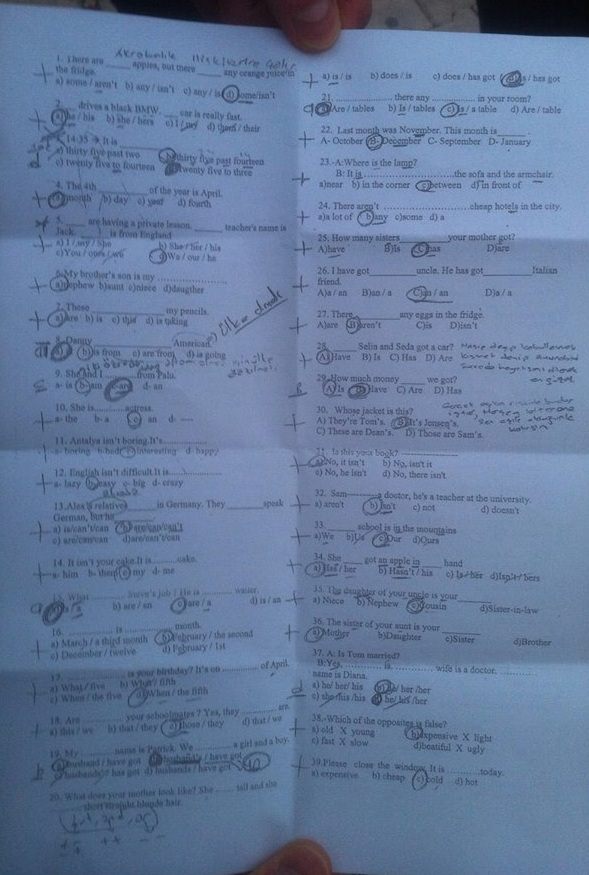 1. There are ____ apples, but there ____ any orange juice in
the fridge.
a) some / aren't b) any / isn't c) any / is d) some/isn't
2. ____ drives a black BMW. ____ car is really fast.
b) she / hers c) I / my d) them / their
14:35 → It is
a) thirty five past two b) thirty five past fourteen
c) twenty five to fourteen twenty five to three
4. The 4th ____ of the year is April.
a) month b) day c) year d) fourth
5. ____ are having a private lesson. ____ teacher's name is
Jack. ____ is from England
a) I / my / She b) She / her / his
c) You / ours / we d) We / our / he
6. My brother's son is my
a) nephew b) aunt c) niece d) daugther
7. These ____ my pencils.
a) are b) is c) this d) is taking
8. Danny ____ American.
b) is from c) are from d) is going
9. She and I ____ from Palu.
a- is b- am c- are d- an
10. She is ____ actress.
a- the b- a c) an d- ---
11. Antalya isn't boring.It's
a- boring b- bed c) interesting d- happy
12. English isn't difficult.It is
a- lazy b) easy c- big d- crazy
13. Alex's relatives ____ in Germany. They ____ speak
German, but he
a) is/can't/can b) are/can/can't
c) are/can/can d) are/can't/can
14. It isn't your cake.It is ____ cake.
a- him b- them c) my d- me
15. What ____ Steve's job / He is ____ waiter.
a) is / a b) are / an c) are / a d) is / an
16. ____ is ____ month.
a) March / a thipd month b) February / the second
c) December / twelve d) February / 1st
17. ____ is your birthday? It's on ____ of April.
a) What / five b) What / fifth
c) When / the five d) When / the fifth
18. Are ____ your schoolmates ? Yes, they ____ are.
a) this / we b) that / they c) those / they d) that / we
19. My ____ name is Patrick. We ____ a girl and a boy.
a) husband / have got b) husbands' / have got
husbands / has got d) husbands / have got
20. What does your mother look like? She ____ tall and she
____ short straight blonde hair.
a) is / is b) does / is c) does / has got d) is / has got
21. ____ there any ____ in your room?
a) Are / tables b) Is / tables c) Is / a table d) Are / table
22. Last month was November. This month is ____.
A- October B- December C- September D- January
23.-A:Where is the lamp?
B: It is ____ the sofa and the armchair.
a)near b) in the corner c)between d)in front of
24. There aren't ____ cheap hotels in the city.
a)a lot of b)any c)some d) a
25. How many sisters ____ your mother got?
A)have B)Is C)has D)are
26. I have got ____ uncle. He has got ____ Italian
friend.
A)a / an B)an / a C)an / an D)a / a
27. There ____ any eggs in the fridge.
A)are B)aren't C)is D)isn't
28. ____ Selia and Seda got a car?
A) Have B) Is C) Has D) Are
29. How much money ____ we got?
A) Is B) Have C) Are D) Has
30. Whose jacket is this?
A) They're Tom's. B) It's Jonseq's.
C) These are Dean's. D) Those are Sam's.
31. Is this your book?
a) No, it isn't b) No, isn't it
c) No, he isn't d) No, there isn't
32. Sam ____ a doctor, he's a teacher at the university.
a) aren't b) isn't c) not d) doesn't
33. ____ school is in the mountains
a)We b)Us c)Our d)Ours
34. She ____ got an apple in ____ hand
a) Has / her b) Hasn't / his c) Is / her d)Isn't / hers
35. The daughter of your uncle is your
a) Niece b) Nephew c)Cousin d)Sister-in-law
36. The sister of your aunt is your
a)Mother b)Daughter c)Sister d)Brother
37. A: Is Tom married?
B:Yes, ____ is. ____ wife is a doctor. ____
name is Diana.
a) he/ her/ his b) he/ her /her
c) she /his /his d) he/ his /her
38.-Which of the opposites is false?
a) old X young b)expensive X light
c) fast X slow d)beatiful X ugly
39.Please close the window. It is ____ today.
a) expensive b) cheap c) cold d) hot